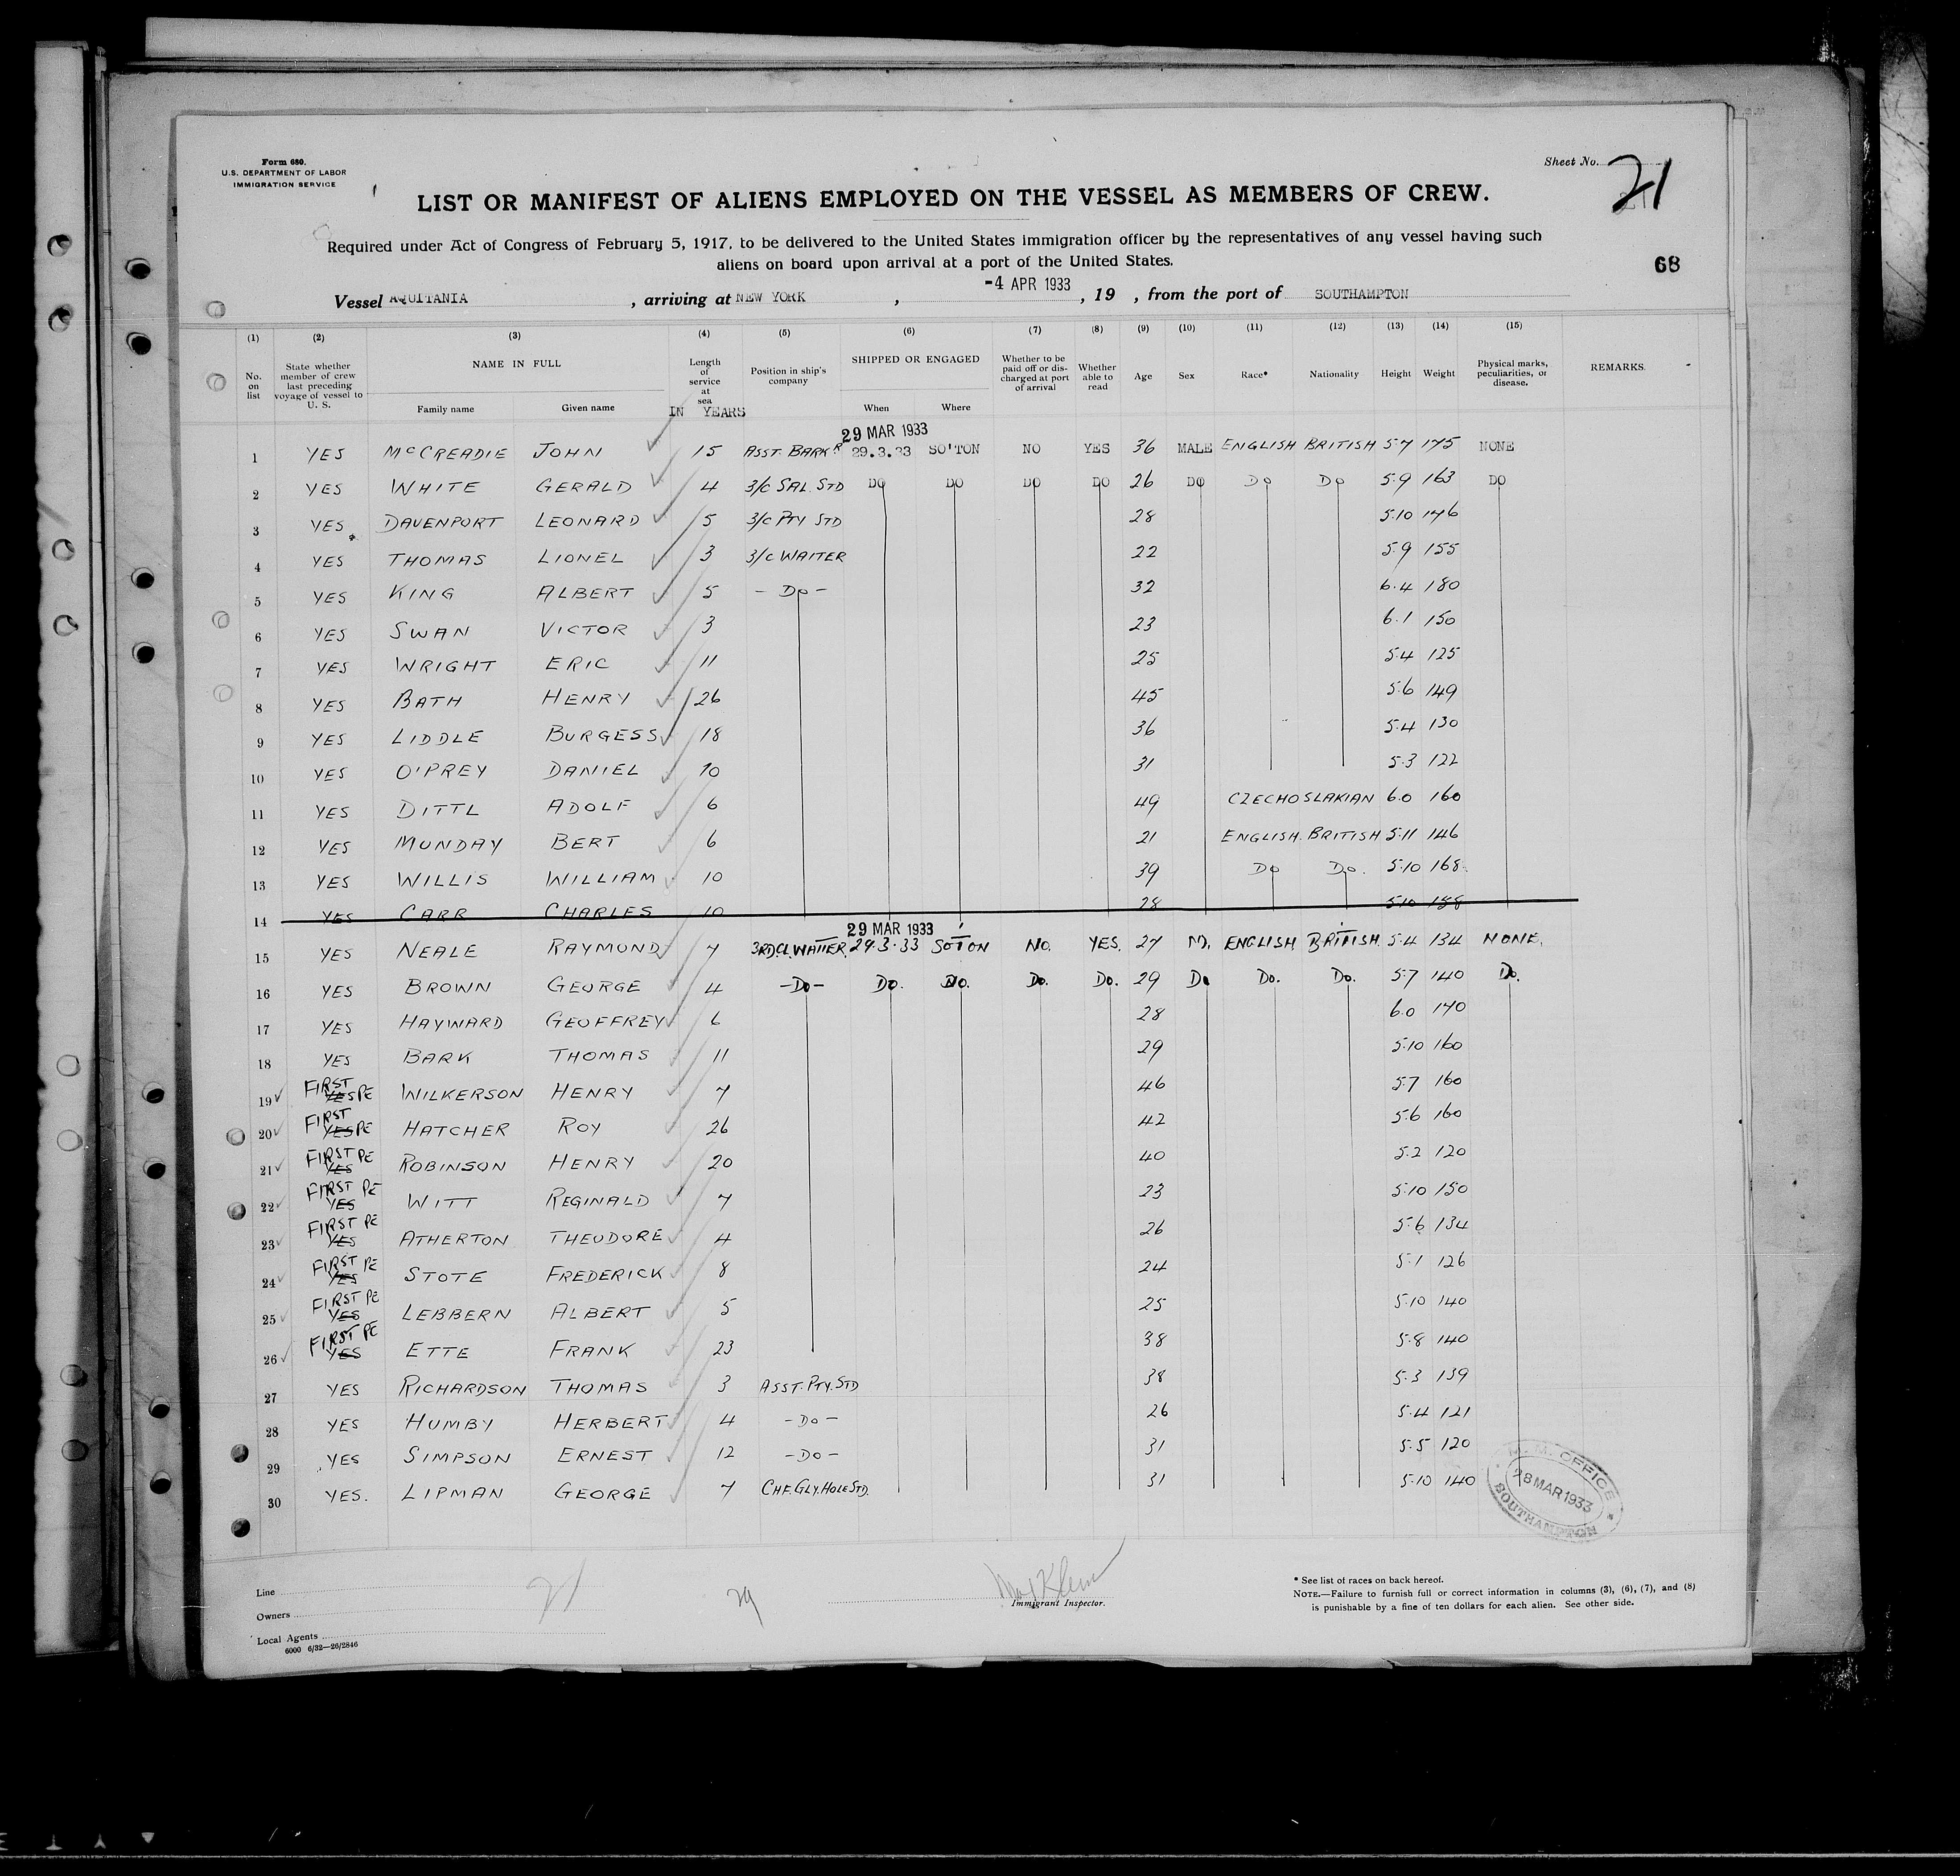 Form 680.
U.S. DEPARTMENT OF LABOR
IMMIGRATION SERVICE
Sheet No. 21
LIST OR MANIFEST OF ALIENS EMPLOYED ON THE VESSEL AS MEMBERS OF CREW.
Required under Act of Congress of February 5, 1917, to be delivered to the United States immigration officer by the representatives of any vessel having such
aliens on board upon arrival at a port of the United States.
68
Vessel AQUITANIA, arriving at NEW YORK, -4 APR 1933, 19 , from the port of SOUTHAMPTON
(1) (2) (3) (4) (5) (6) (7) (8) (9) (10) (11) (12) (13) (14) (15)
No. on list State whether member of crew last preceding voyage of vessel to U. S. NAME IN FULL Family name Given name Length of service at sea IN YEARS Position in ship's company SHIPPED OR ENGAGED When Where Whether to be paid off or discharged at port of arrival Whether able to read Age Sex Race* Nationality Height Weight Physical marks, peculiarities, or disease. REMARKS.
29 MAR 1933
1 YES McCREADIE JOHN 15 ASST. BARKR 29.3.33 SO'TON NO YES 36 MALE ENGLISH BRITISH 5.7 175 NONE
2 YES WHITE GERALD 4 3/C SAL. STD DO DO DO DO 26 DO DO DO 5.9 163 DO
3 YES DAVENPORT LEONARD 5 3/C PTY STD 28 5.10 146
4 YES THOMAS LIONEL 3 3/C WAITER 22 5.9 155
5 YES KING ALBERT 5 - DO - 32 6.4 180
6 YES SWAN VICTOR 3 23 6.1 150
7 YES WRIGHT ERIC 11 25 5.4 125
8 YES BATH HENRY 26 45 5.6 149
9 YES LIDDLE BURGESS 18 36 5.4 130
10 YES O'PREY DANIEL 10 31 5.3 122
11 YES DITTL ADOLF 6 49 CZECHOSLAKIAN 6.0 160
12 YES MUNDAY BERT 6 21 ENGLISH. BRITISH 5.11 146
13 YES WILLIS WILLIAM 10 39 DO DO. 5.10 168
14 YES CARR CHARLES 10 28 5.10 158
29 MAR 1933
15 YES NEALE RAYMOND 7 3RD.CL.WAITER. 29.3.33 SOTON NO. YES. 27 M. ENGLISH BRITISH. 5.4 134 NONE.
16 YES BROWN GEORGE 4 -DO- DO. DO. DO. DO. 29 DO DO. DO. 5.7 140 DO.
17 YES HAYWARD GEOFFREY 6 28 6.0 170
18 YES BARK THOMAS 11 29 5.10 160
19 FIRST YES PE WILKERSON HENRY 7 46 5.7 160
20 FIRST YES PE HATCHER ROY 26 42 5.6 160
21 FIRST PE YES ROBINSON HENRY 20 40 5.2 120
22 FIRST PE YES WITT REGINALD 7 23 5.10 150
23 FIRST PE YES ATHERTON THEODORE 4 26 5.6 134
24 FIRST PE YES STOTE FREDERICK 8 24 5.1 126
25 FIRST PE YES LEBBERN ALBERT 5 25 5.10 140
26 FIRST PE YES ETTE FRANK 23 38 5.8 140
27 YES RICHARDSON THOMAS 3 ASST. PTY. STD 38 5.3 139
28 YES HUMBY HERBERT 4 -DO- 26 5.4 121
29 YES SIMPSON ERNEST 12 -DO- 31 5.5 120
30 YES. LIPMAN GEORGE 7 CHF.GLY.HOLE STD. 31 5.10 140
M. M. OFFICE
28 MAR 1933
SOUTHAMPTON
Line
Owners
Local Agents
6000 6/32—26/2846
21
29
Immigrant Inspector.
* See list of races on back hereof.
NOTE.—Failure to furnish full or correct information in columns (3), (6), (7), and (8)
is punishable by a fine of ten dollars for each alien. See other side.